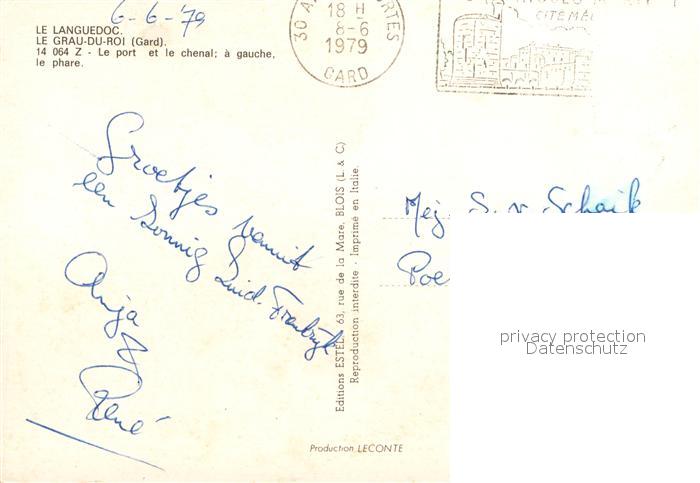 6-6-'79
LE LANGUEDOC.
LE GRAU-DU-ROI (Gard).
14 064 Z - Le port et le chenal; à gauche,
le phare.
18 H
8-6
1979
GARD
Groetjes vanuit
een Zonnig Zuid-Frankrijk
Anja &
René
Editions ESTEL, 63, rue de la Mare, BLOIS (L. & C)
Reproduction interdite - Imprimé en Italie.
Production LECONTE
Mej. S. v Schaik
Poe
privacy protection
Datenschutz